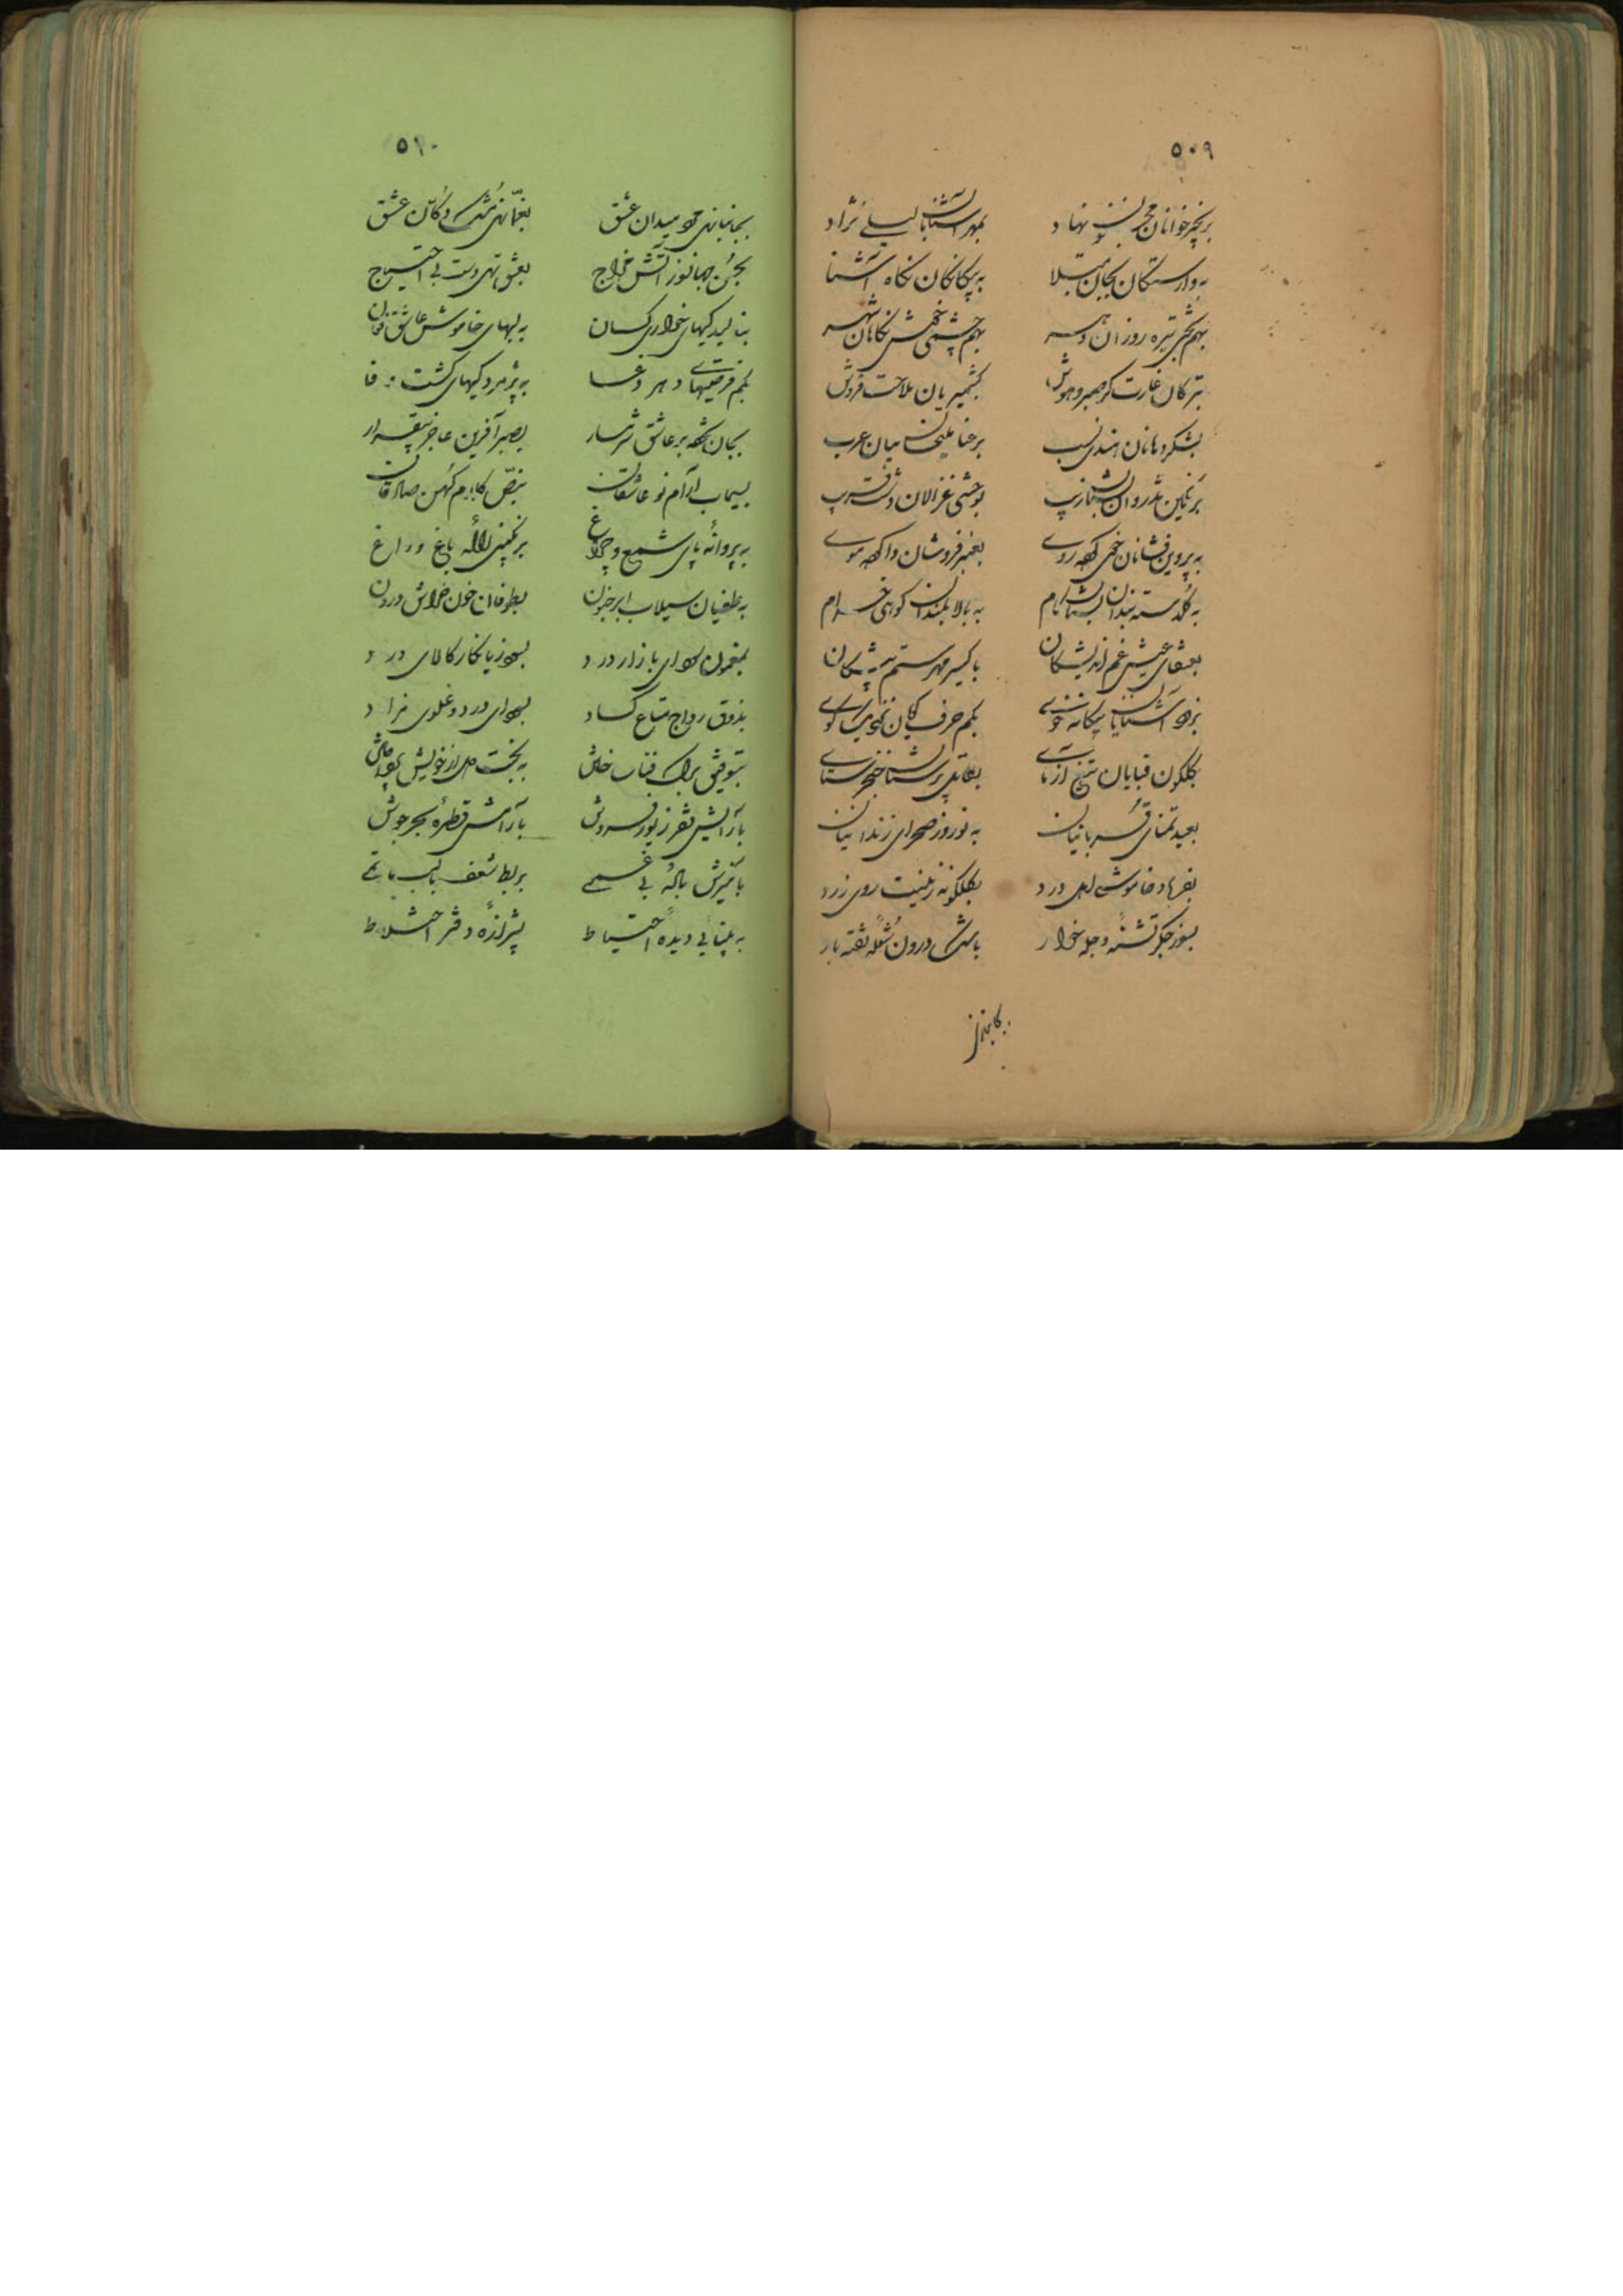 ۵۰۹
بزنجیرخوانان مجنون نهاد بمهر آشنایان لیلے نژاد
به وارستگان بجان مبتلا به بیگانگان نگاه آشنا
بهم بختی تیره روزان دهر بهم چشمی خوش نگاهان شهر
بترکان غارت گر صبر و هوش بکشمیریان ملاحت فروش
بشکر دهانان هندی نسب برعنا ملیحان میان عرب
برنگین تذروان بوحشی غزالان دشت فریب
به پروین فشانان خوی کرده روے بعنبر فروشان وا کرده موے
به گلدسته بندان به بالا بلندان کوهی خرام
بعنقای عیش غم اندیشگان باکسیر مهر ستم پیشگان
بزود آشنایان بیگانه خوے بکم حرف گویان
بگلگون قبایان تیغ آزماے بقاتل پرستان خنجر ستاے
بعید تمنای قربانیان به نوروز صحرای زندانیان
بفریاد خاموشے اهل درد بگلگونه زینت روی زرد
بسوز جگر تشنهٔ دجله خوار باشک درون شعلهٔ تفته بار
۵۱۰
بجانبازی مرد میدان عشق دکان عشق
بحسن جهانسوز آتش خراج بعشق تهی دست بی احتیاج
بنالیدگیهای خواری کسان به لبهای خاموش عاشق
بکم فرصتیهاے دهر دغا به پژمردگیهای کشت وفا
بجان شکوه بر عاشق شرمسار بصبر آفرین عاجز بیقرار
بسیماب آرام نو عاشقان بنبض کهن صادقان
به پروانهٔ پای شمع و چراغ برنگینی لالهٔ باغ و راغ
به طغیان سیلاب ابر جنون بطوفان خون خراش درون
بمغبون سودای بازار درد بسود زیانکار کالای درد
بذوق رواج متاع کساد بسودای درد و غلوی مراد
بتوفیق به بخت
بآرایش فقر زیور فروش بآرامش قطرهٔ بحر جوش
بآمیزش نالهٔ بی غمے بربط شغف با لب ماتمے
به بینائی دیدهٔ احتیاط بشیرازهٔ دفتر اختلاط